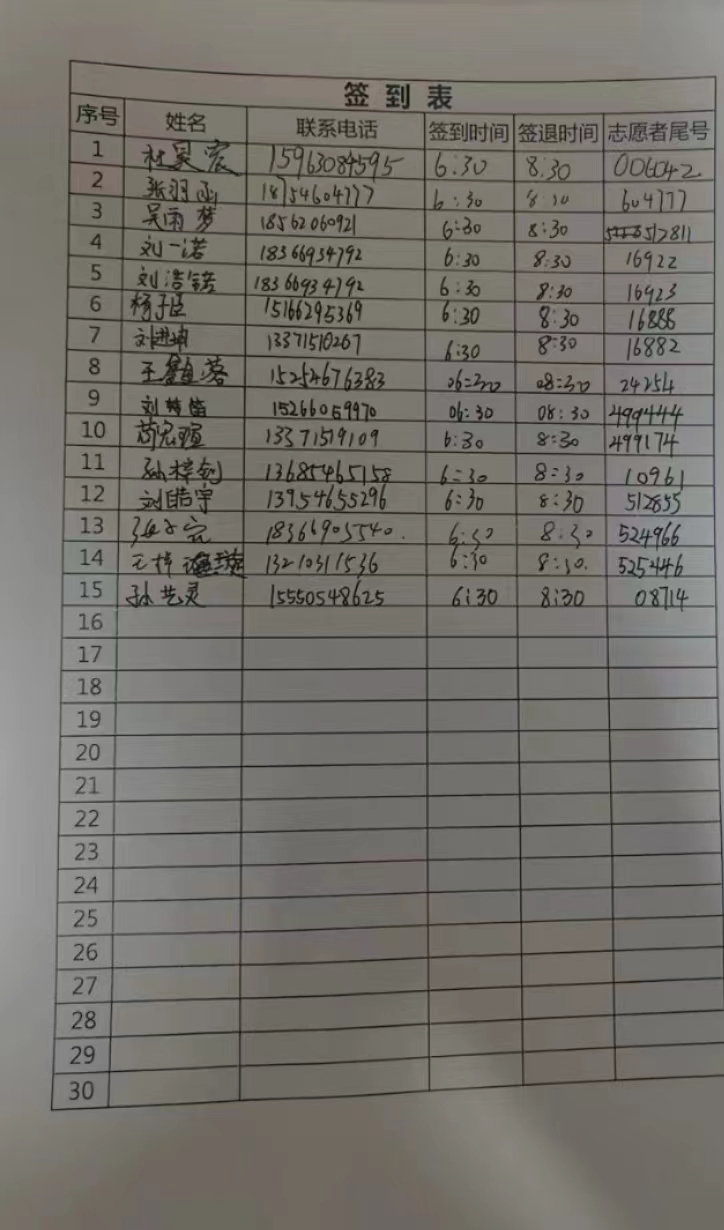 签到表
序号 姓名 联系电话 签到时间 签退时间 志愿者尾号
1 杜昊宸 15963084595 6:30 8:30 006042
2 张羽函 18754604777 6:30 8:30 604777
3 吴雨梦 18562060921 6:30 8:30 512811
4 刘一诺 18366934792 6:30 8:30 16922
5 刘浩锘 18366934792 6:30 8:30 16923
6 杨子臣 15166295369 6:30 8:30 16888
7 刘进 13371510267 6:30 8:30 16882
8 王 15254676383 06:30 08:30 24254
9 刘 笛 15266059970 06:30 08:30 499444
10 宸瑄 13371519109 6:30 8:30 499174
11 孙梓钊 13685465158 6:30 8:30 10961
12 刘皓宇 13954655296 6:30 8:30 512855
13 张子宸 18366905540. 6:30 8:30 524966
14 王梓 13210311536 6:30 8:30. 525446
15 孙艺灵 15550548625 6:30 8:30 08714
16
17
18
19
20
21
22
23
24
25
26
27
28
29
30